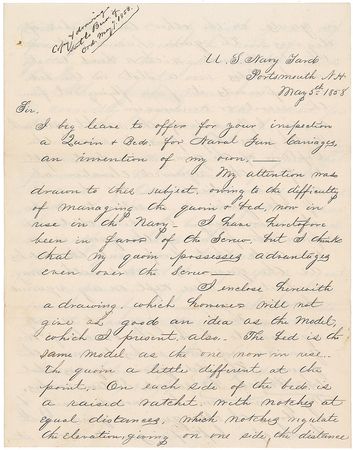 Cy & drawing
sent to Bureau of
Ord. May 7, 1858.
U. S Navy Yard
Portsmouth N.H
May 5th 1858
Sir,
I beg leave to offer for your inspection
a Quoin & Bed, for Naval Gun Carriages,
an invention of my own.—
My attention was
drawn to this subject, owing to the difficulty
of managing the quoin & bed, now in
use in the Navy— I have heretofore
been in favor of the Screw, but I think
that my quoin possesses advantages
even over the Screw—
I enclose herewith
a drawing, which however will not
give as good an idea as the Model,
which I present, also. The bed is the
same model as the one now in use.
The quoin a little different at the
point,. On each side of the bed, is
a raised ratchet, with notches at
equal distances, which notches regulate
the elevation, giving on one side the distance